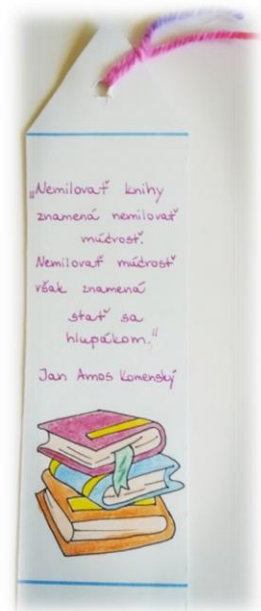 „Nemilovať knihy
znamená nemilovať
múdrosť.
Nemilovať múdrosť
však znamená
stať sa
hlupákom."
Jan Amos Komenský